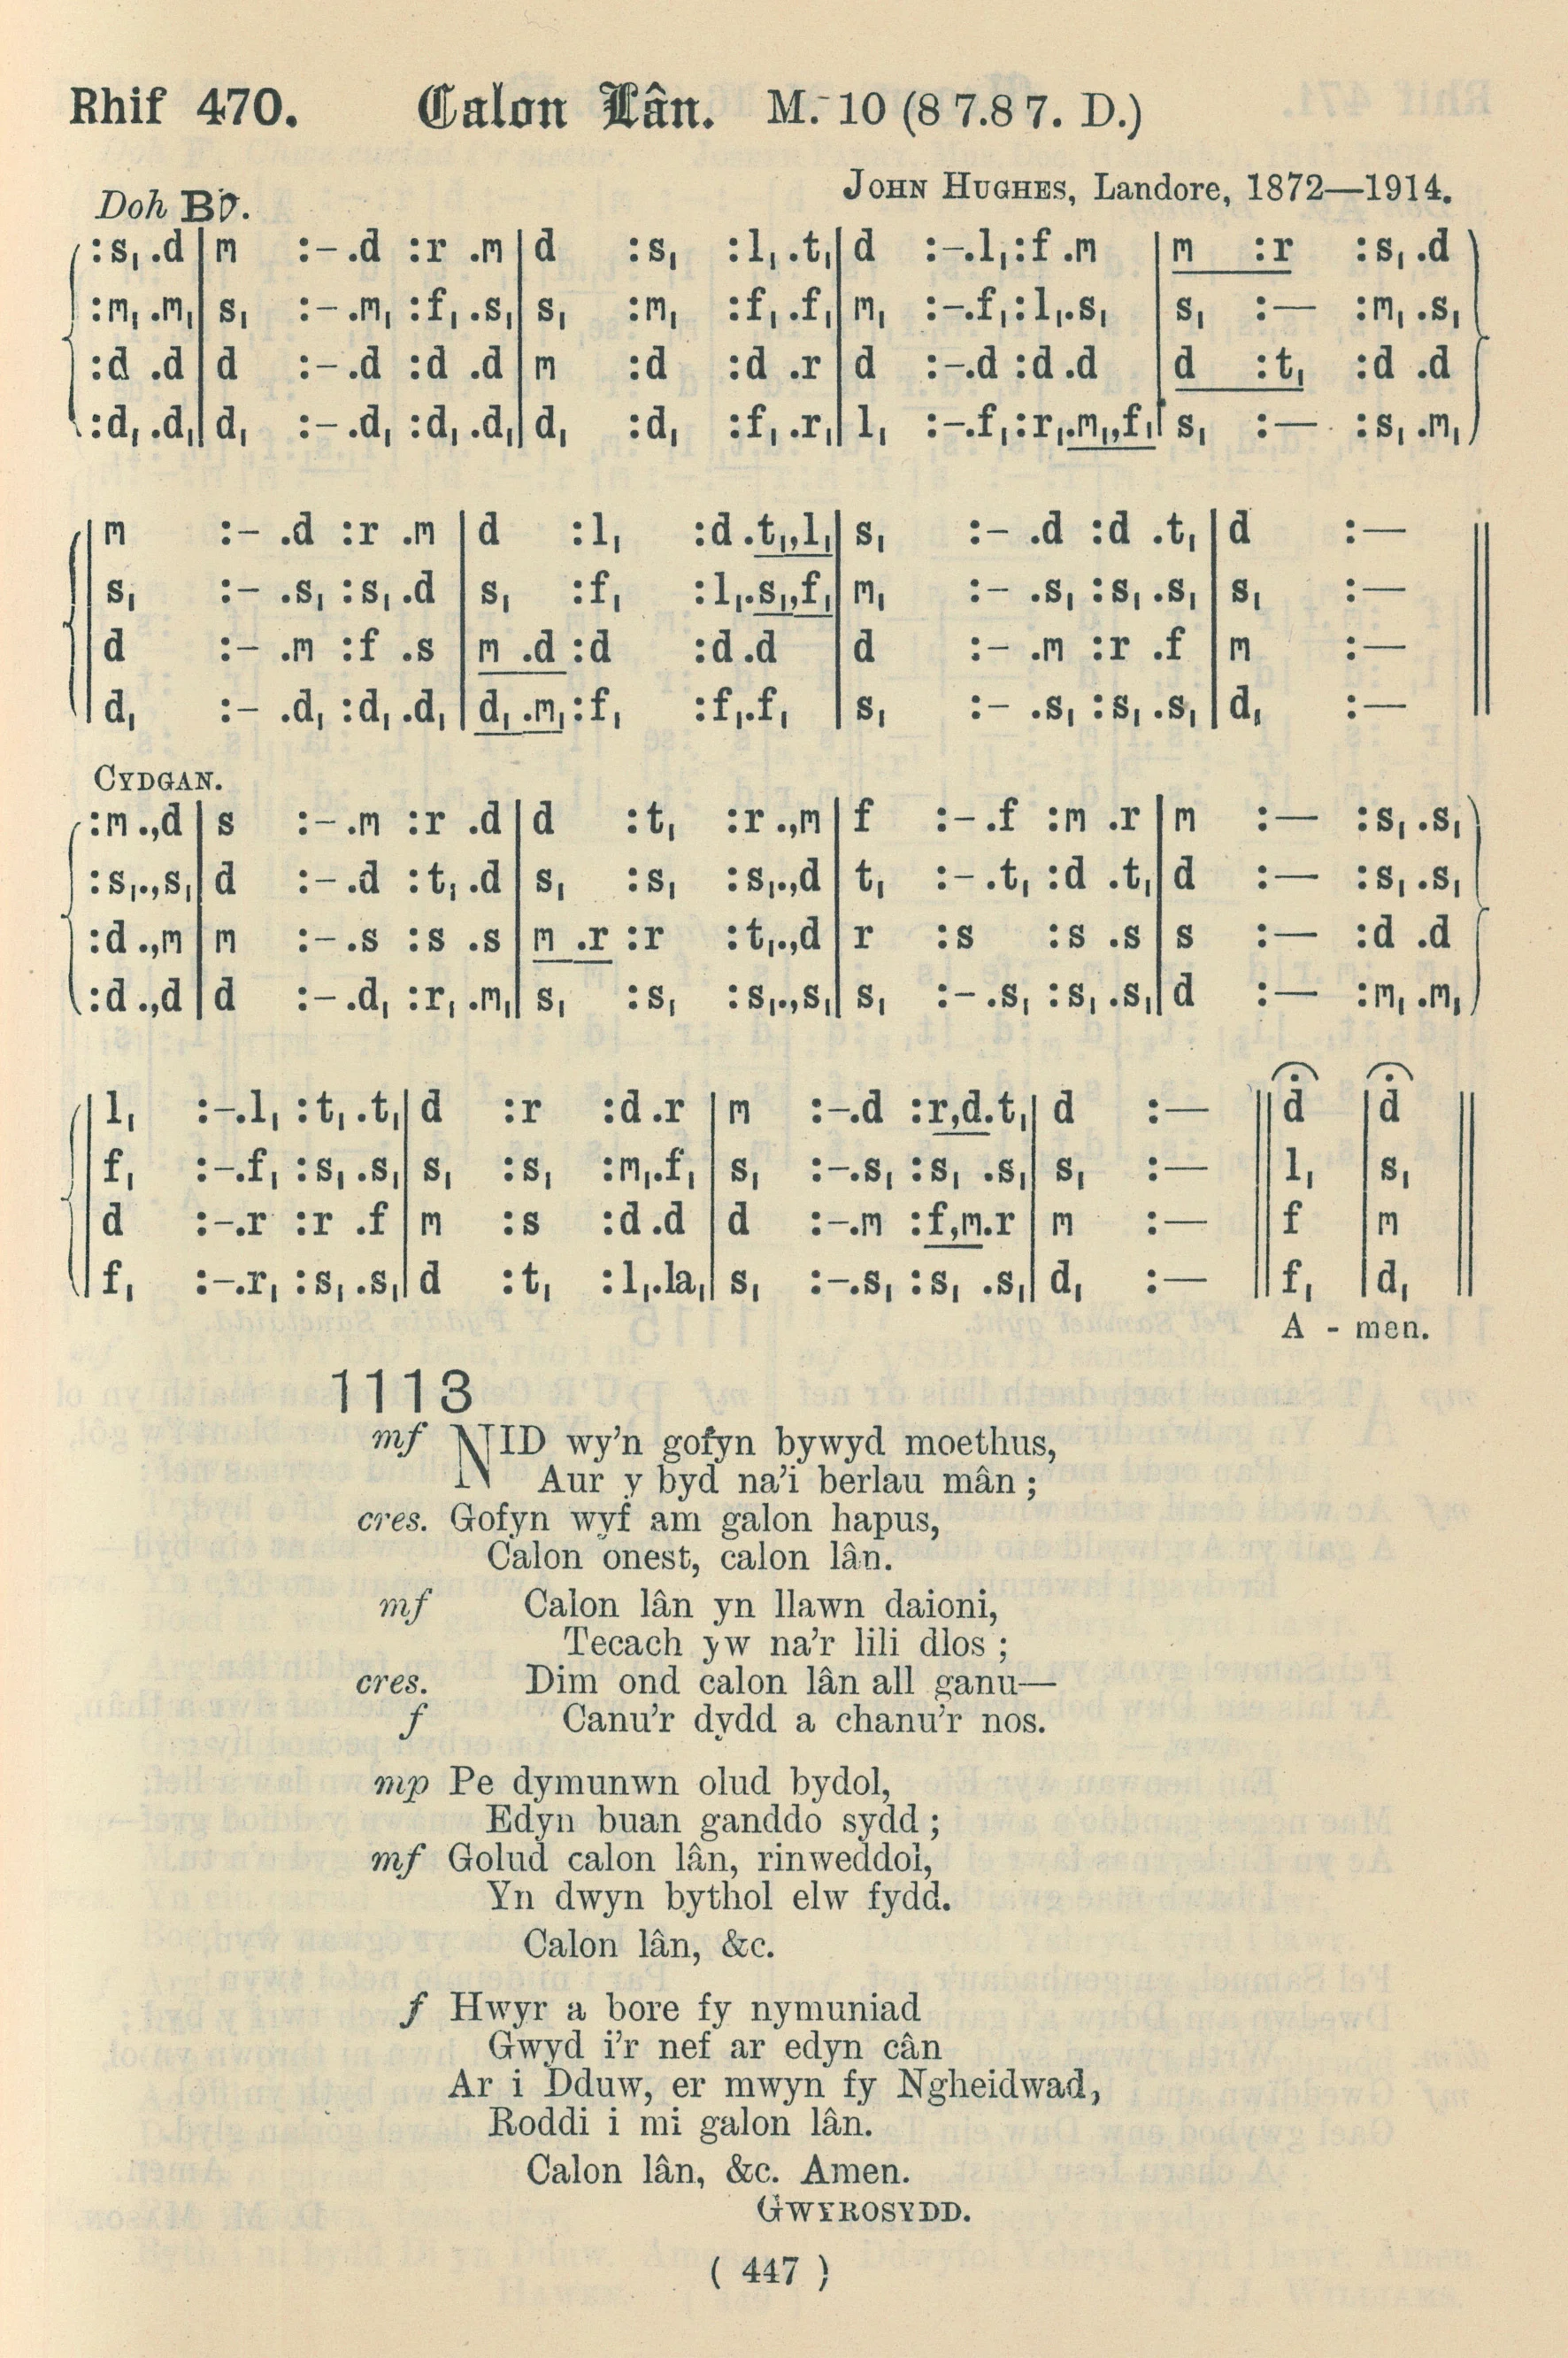 Rhif 470. Calon Lân. M. 10 (8 7.8 7. D.)
JOHN HUGHES, Landore, 1872—1914.
Doh B♭.
:s, .d | m :– .d :r .m | d :s, :l, .t, | d :–.l, :f .m | m :r :s, .d
:m, .m, | s, :– .m, :f, .s, | s, :m, :f, .f, | m, :–.f, :l, .s, | s, :— :m, .s,
:d .d | d :– .d :d .d | m :d :d .r | d :–.d :d .d | d :t, :d .d
:d, .d, | d, :– .d, :d, .d, | d, :d, :f, .r, | l, :–.f, :r, .m,,f, | s, :— :s, .m,
m :– .d :r .m | d :l, :d .t,,l, | s, :– .d :d .t, | d :—
s, :– .s, :s, .d | s, :f, :l, .s,,f, | m, :– .s, :s, .s, | s, :—
d :– .m :f .s | m .d :d :d .d | d :– .m :r .f | m :—
d, :– .d, :d, .d, | d, .m, :f, :f, .f, | s, :– .s, :s, .s, | d, :—
CYDGAN.
:m .,d | s :– .m :r .d | d :t, :r .,m | f :– .f :m .r | m :— :s, .s,
:s, .,s, | d :– .d :t, .d | s, :s, :s, .,d | t, :– .t, :d .t, | d :— :s, .s,
:d .,m | m :– .s :s .s | m .r :r :t, .,d | r :s :s .s | s :— :d .d
:d .,d | d :– .d, :r, .m, | s, :s, :s, .,s, | s, :– .s, :s, .s, | d :— :m, .m,
l, :–.l, :t, .t, | d :r :d .r | m :–.d :r,d.t, | d :— || ḋ | ḋ
f, :–.f, :s, .s, | s, :s, :m, .f, | s, :–.s, :s, .s, | s, :— || l, | s,
d :–.r :r .f | m :s :d .d | d :–.m :f,m.r | m :— || f | m
f, :–.r, :s, .s, | d :t, :l, .la, | s, :–.s, :s, .s, | d, :— || f, | d,
A - men.
1113
mf NID wy'n gofyn bywyd moethus,
Aur y byd na'i berlau mân ;
cres. Gofyn wyf am galon hapus,
Calon onest, calon lân.
mf Calon lân yn llawn daioni,
Tecach yw na'r lili dlos ;
cres. Dim ond calon lân all ganu—
f Canu'r dydd a chanu'r nos.
mp Pe dymunwn olud bydol,
Edyn buan ganddo sydd ;
mf Golud calon lân, rinweddol,
Yn dwyn bythol elw fydd.
Calon lân, &c.
f Hwyr a bore fy nymuniad
Gwyd i'r nef ar edyn cân
Ar i Dduw, er mwyn fy Ngheidwad,
Roddi i mi galon lân.
Calon lân, &c. Amen.
GWYROSYDD.
( 447 )